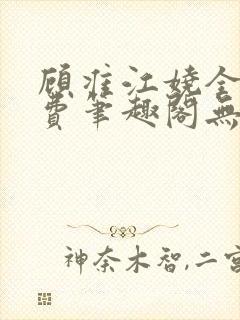 顾淮江娆全
费笔趣阁無
神奈木智,二宫